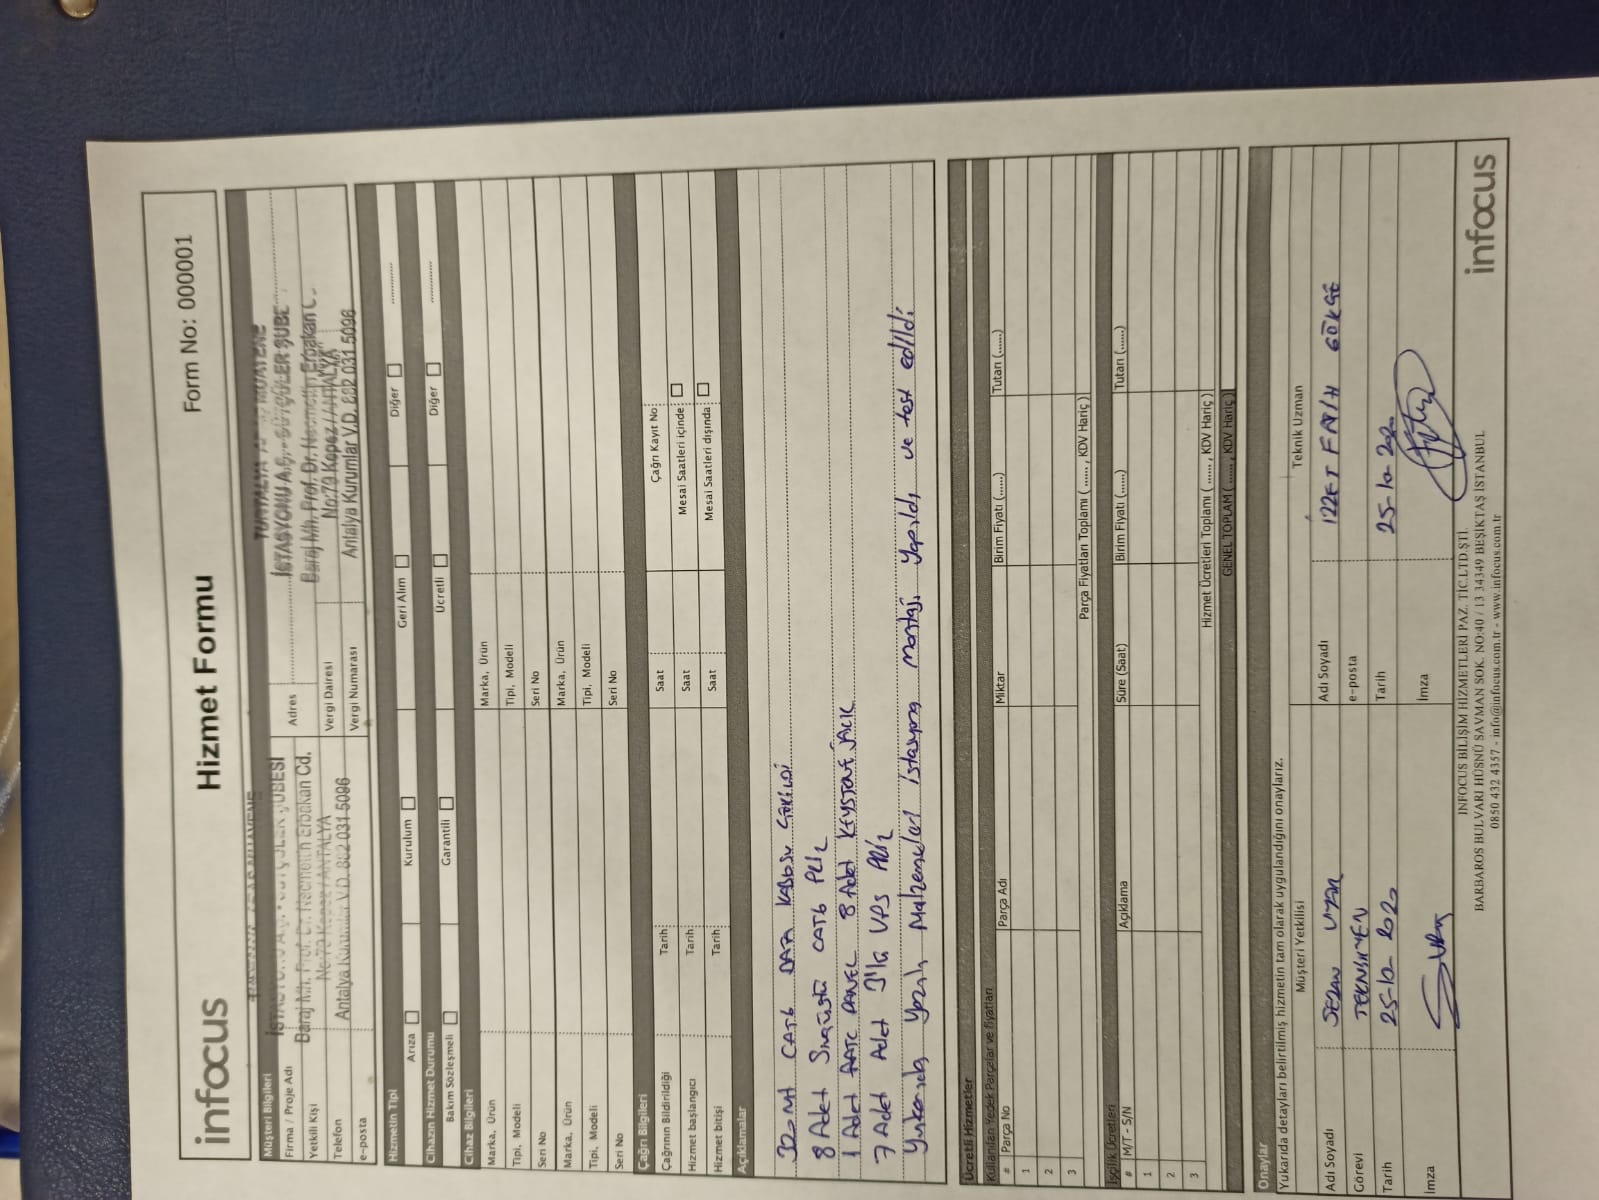 infocus
Hizmet Formu
Form No: 000001
Müşteri Bilgileri
Firma / Proje Adı
Yetkili Kişi
Telefon
e-posta
İSTASYONU A.Ş. - SÜTÇÜLER ŞUBESİ
Baraj Mh. Prof. Dr. Necmettin Erbakan Cd.
No:79 Kepez / ANTALYA
Antalya Kurumlar V.D. 882 031 5096
Adres
Vergi Dairesi
Vergi Numarası
İSTASYONU A.Ş. - SÜTÇÜLER ŞUBE
Baraj Mh. Prof. Dr. Necmettin Erbakan C
No:79 Kepez / ANTALYA
Antalya Kurumlar V.D. 882 031 5096
Hizmetin Tipi
Arıza Kurulum Geri Alım Diğer ............
Cihazın Hizmet Durumu
Bakım Sözleşmeli Garantili Ücretli Diğer ............
Cihaz Bilgileri
Marka, Ürün Marka, Ürün
Tipi, Modeli Tipi, Modeli
Seri No Seri No
Marka, Ürün Marka, Ürün
Tipi, Modeli Tipi, Modeli
Seri No Seri No
Çağrı Bilgileri
Çağrının Bildirildiği Tarih Saat Çağrı Kayıt No
Hizmet başlangıcı Tarih Saat Mesai Saatleri içinde
Hizmet bitişi Tarih Saat Mesai Saatleri dışında
Açıklamalar
320 Mt CAT6 DATA KABOSU ÇEKİLDİ
8 Adet Sıvaüstü CAT6 PRİZ
1 Adet PANEL 8 Adet KEYSTONE JACK
7 Adet Adet 3'lü UPS PRİZ
Yukarıda yazılı Malzemeleri istasyona montajı yapıldı ve test edildi
Ücretli Hizmetler
Kullanılan Yedek Parçalar ve fiyatları
# Parça No Parça Adı Miktar Birim Fiyatı (......) Tutarı (......)
1
2
3
Parça Fiyatları Toplamı ( ...... , KDV Hariç )
İşçilik Ücretleri
# M/T - S/N Açıklama Süre (Saat) Birim Fiyatı (......) Tutarı (......)
1
2
3
Hizmet Ücretleri Toplamı ( ...... , KDV Hariç )
GENEL TOPLAM ( ...... , KDV Hariç )
Onaylar
Yukarıda detayları belirtilmiş hizmetin tam olarak uygulandığını onaylarız.
Müşteri Yetkilisi Teknik Uzman
Adı Soyadı Adı Soyadı İZZET FATİH GÖKÇE
Görevi TEKNİSYEN e-posta
Tarih 25-10-2020 Tarih 25-10-2020
İmza İmza
INFOCUS BİLİŞİM HİZMETLERİ PAZ. TİC.LTD.ŞTİ.
BARBAROS BULVARI HÜSNÜ SAVMAN SOK. NO:40 / 13 34349 BEŞİKTAŞ İSTANBUL
0850 432 4357 - info@infocus.com.tr - www.infocus.com.tr
infocus